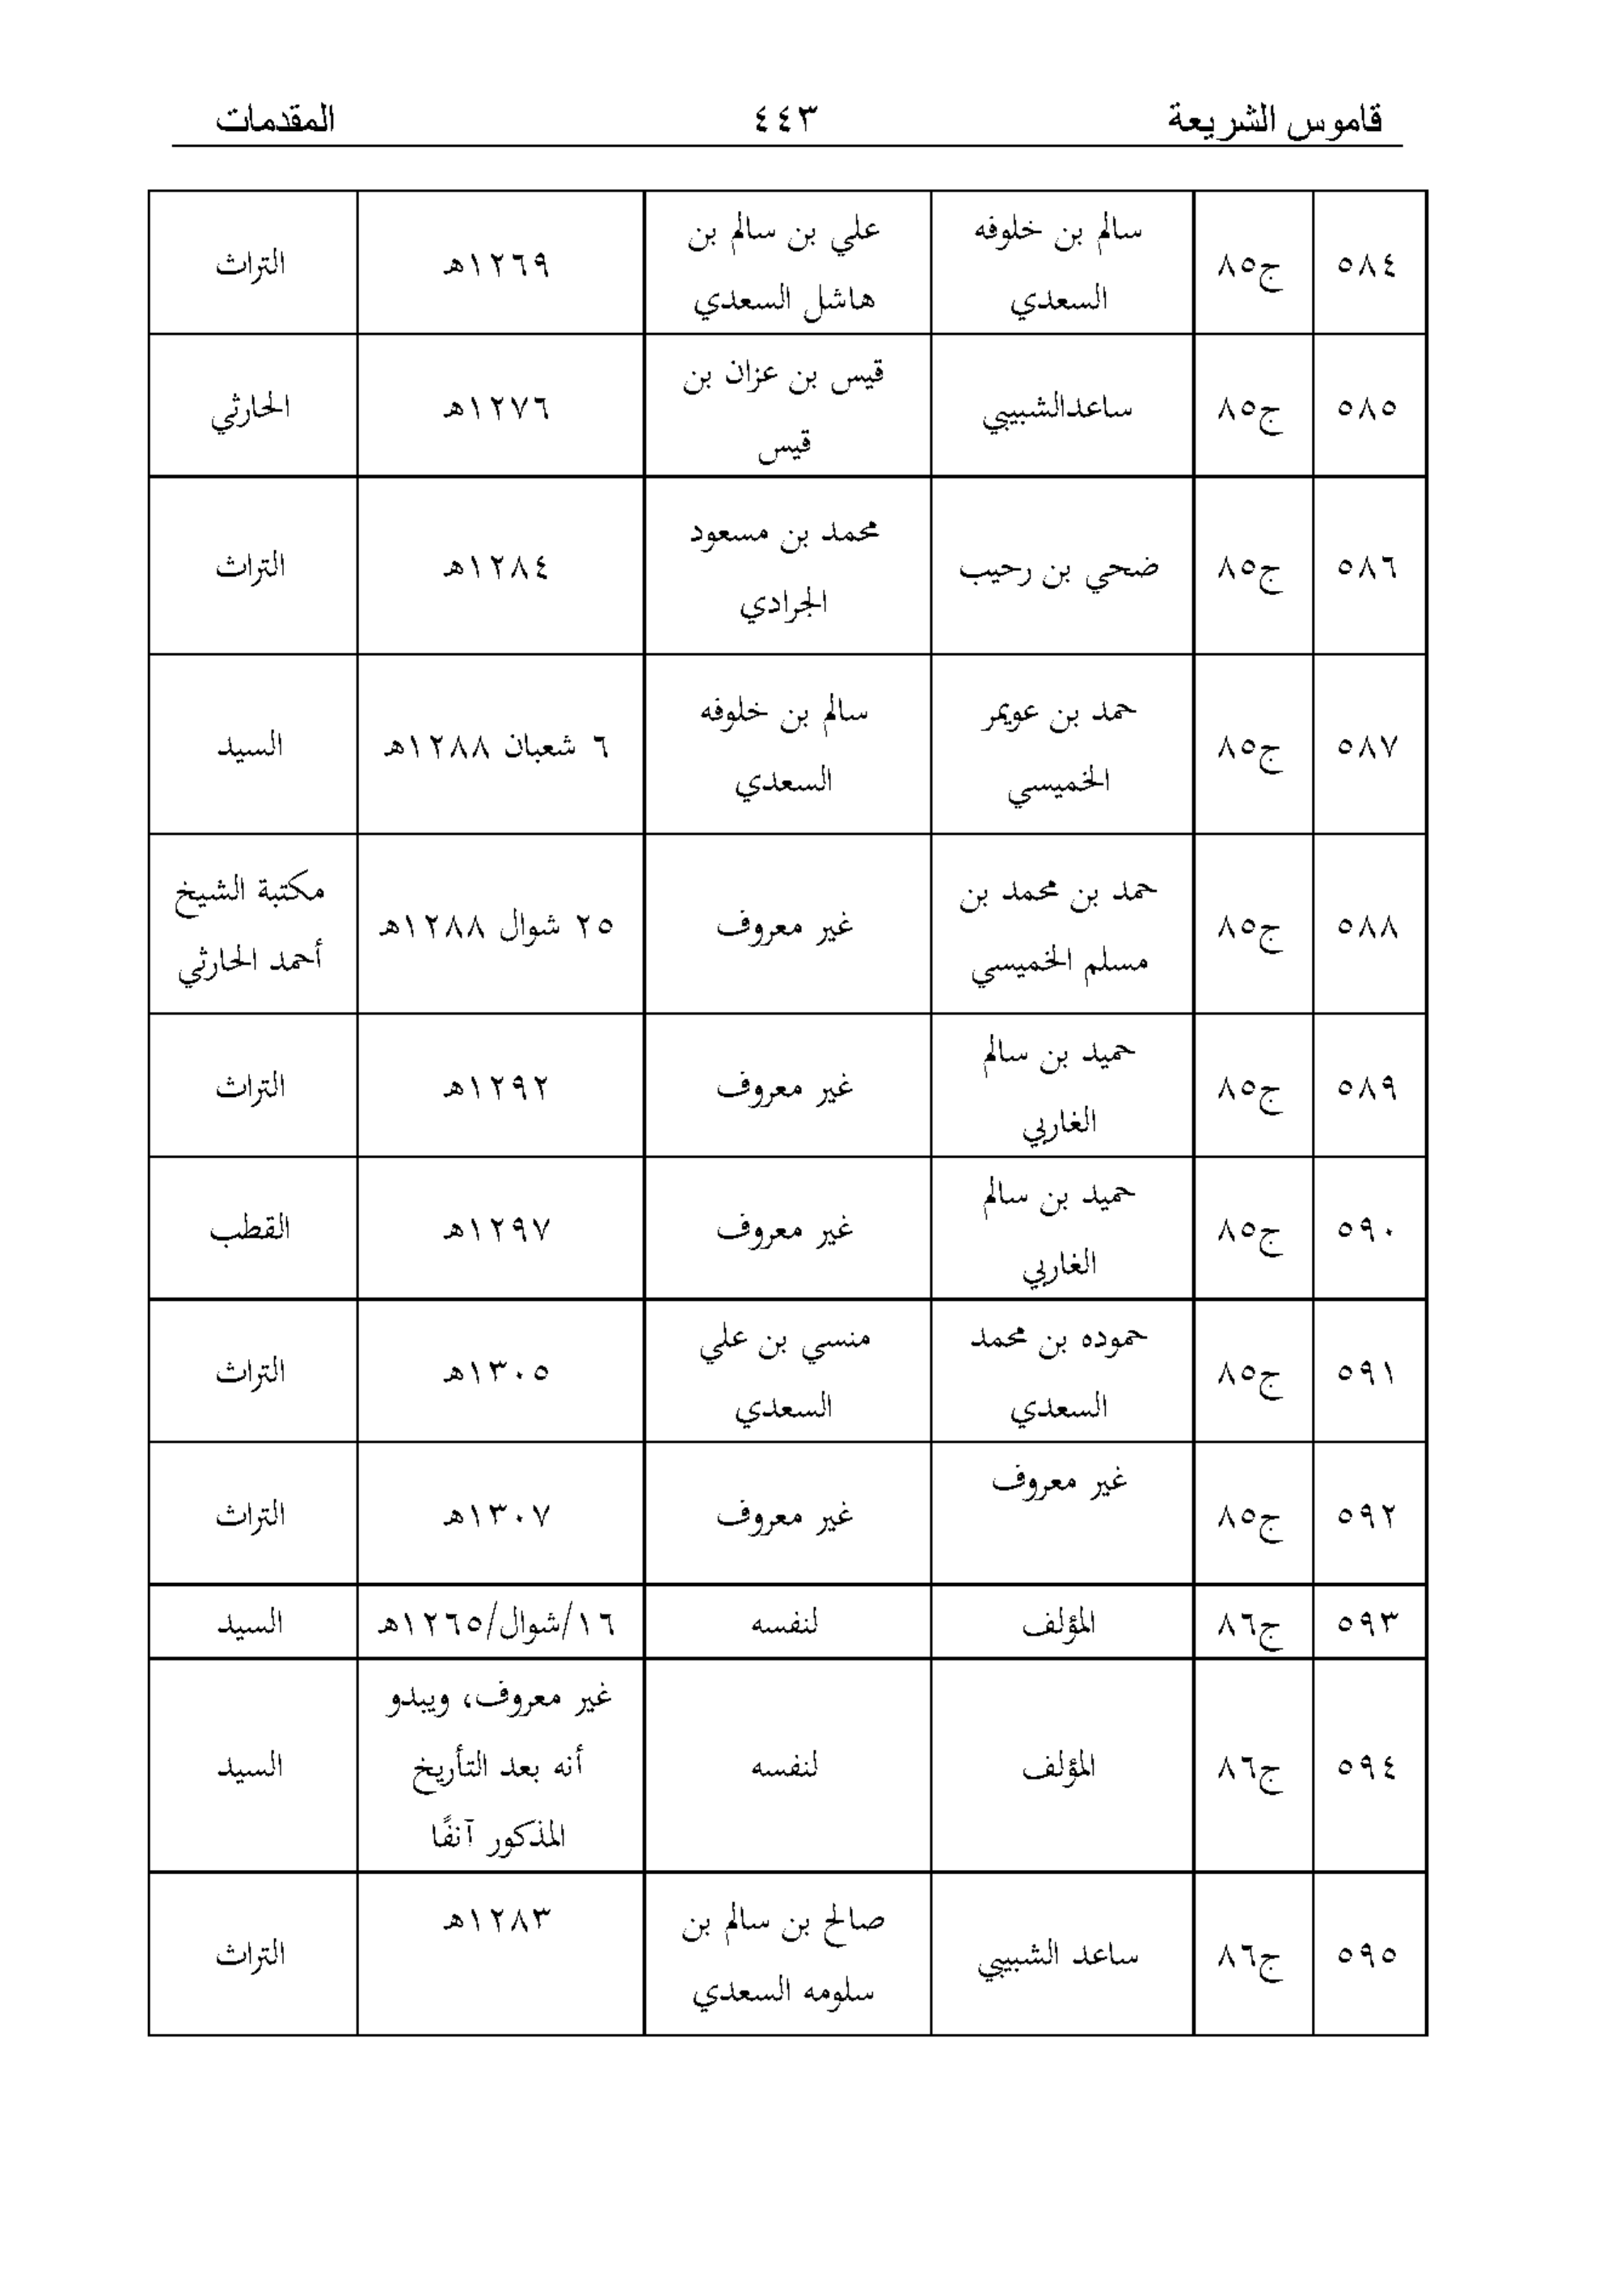 قاموس الشريعة
٤٤٣
المقدمات
٥٨٤
ج٨٥
سالم بن خلوفه
السعدي
علي بن سالم بن
هاشل السعدي
١٢٦٩هـ
التراث
٥٨٥
ج٨٥
ساعدالشبيبي
قيس بن عزان بن
قيس
١٢٧٦هـ
الحارثي
٥٨٦
ج٨٥
ضحي بن رحيب
محمد بن مسعود
الجرادي
١٢٨٤هـ
التراث
٥٨٧
ج٨٥
حمد بن عويمر
الخميسي
سالم بن خلوفه
السعدي
٦ شعبان ١٢٨٨هـ
السيد
٥٨٨
ج٨٥
حمد بن محمد بن
مسلم الخميسي
غير معروف
٢٥ شوال ١٢٨٨هـ
مكتبة الشيخ
أحمد الحارثي
٥٨٩
ج٨٥
حميد بن سالم
الغاربي
غير معروف
١٢٩٢هـ
التراث
٥٩٠
ج٨٥
حميد بن سالم
الغاربي
غير معروف
١٢٩٧هـ
القطب
٥٩١
ج٨٥
حموده بن محمد
السعدي
منسي بن علي
السعدي
١٣٠٥هـ
التراث
٥٩٢
ج٨٥
غير معروف
غير معروف
١٣٠٧هـ
التراث
٥٩٣
ج٨٦
المؤلف
لنفسه
١٦/شوال/١٢٦٥هـ
السيد
٥٩٤
ج٨٦
المؤلف
لنفسه
غير معروف، ويبدو
أنه بعد التأريخ
المذكور آنفًا
السيد
٥٩٥
ج٨٦
ساعد الشبيبي
صالح بن سالم بن
سلومه السعدي
١٢٨٣هـ
التراث